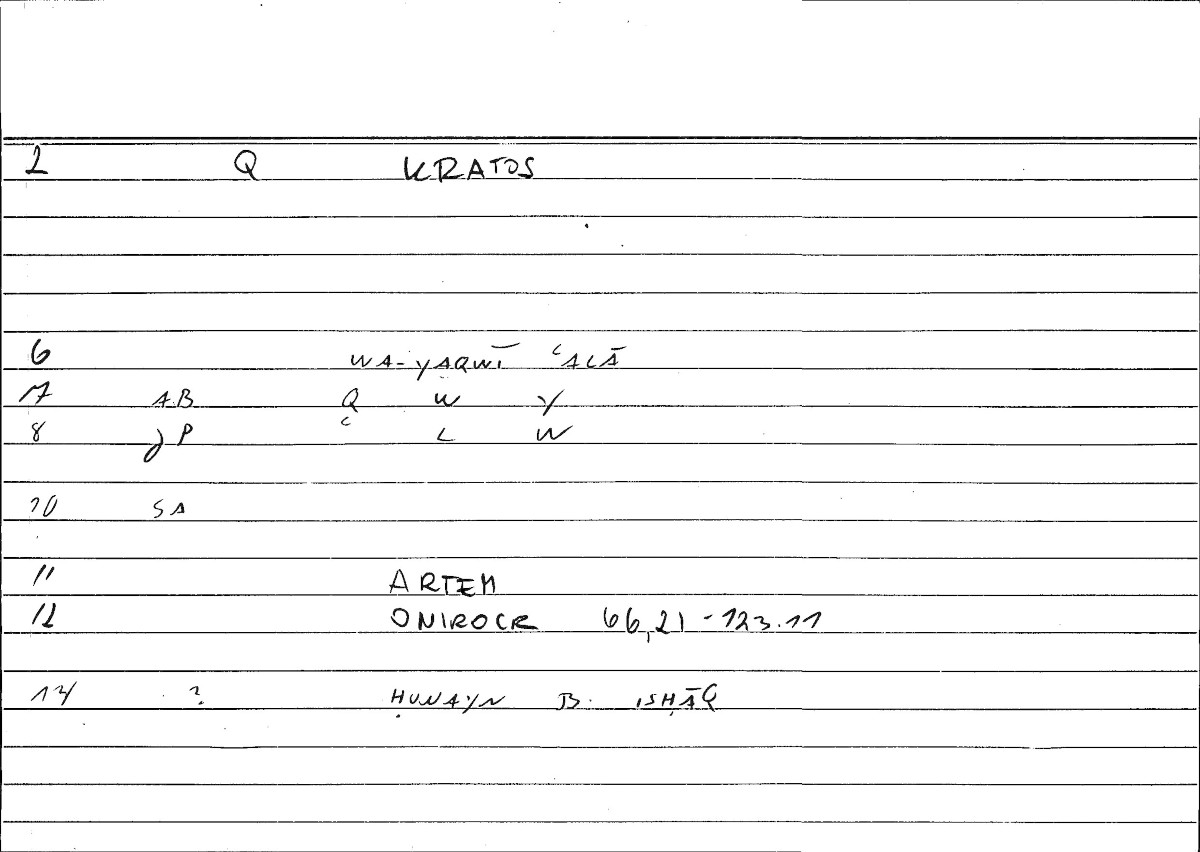 1 Q KRATOS
6 WA-YAQWĪ ʿALĀ
7 AB Q W Y
8 JP ʿ L W
10 SA
11 ARTEM
12 ONIROCR 66,21-123.11
14 ? ḤUNAYN B. ISḤĀQ